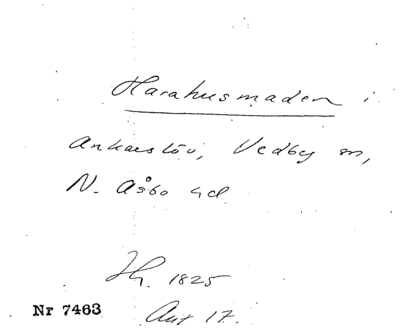 Harahusmaden i
Ankarslöv, Vedby sn,
N. Åsbo hd
Hg. 1825
Nr 7463
Avt 17.